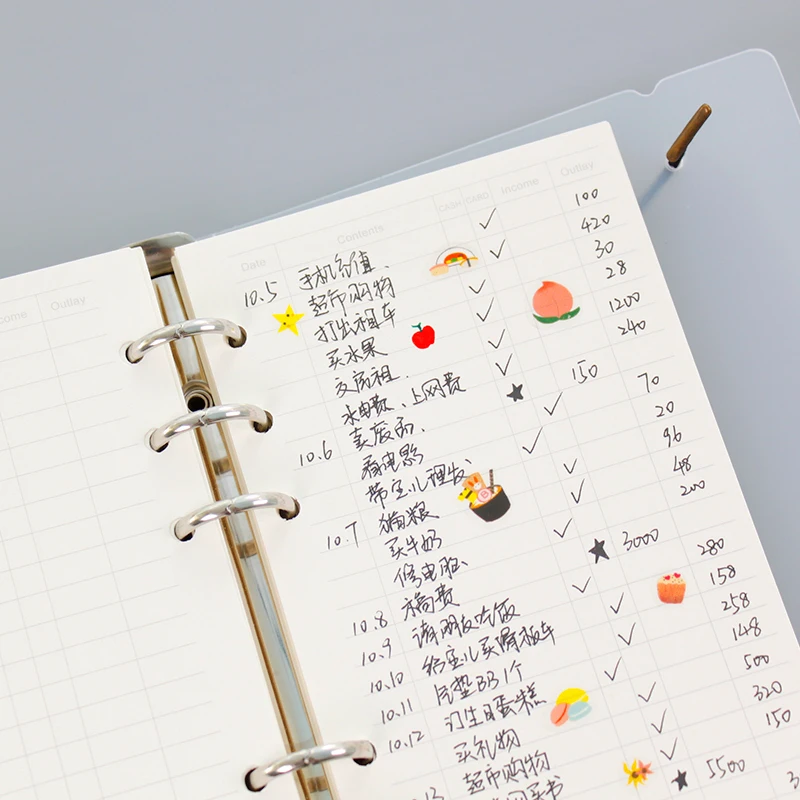 come Outlay
Date Contents CASH CARD Income Outlay
10.5 手机充值、 ✓ 100
超市购物 ✓ 420
打出租车 ✓ 30
买水果 ✓ 28
交房租. ✓ 1200
水电费、上网费 ✓ 240
10.6 卖废品. ★ 150
看电影 ✓ 70
带宝儿理发、 ✓ 20
10.7 猫粮 ✓ 96
买牛奶 ✓ 48
修电脑、 ✓ 200
10.8 稿费 ★ 3000
10.9 请朋友吃饭 ✓ 280
10.10 给宝儿买滑板车 ✓ 158
10.11 1个 ✓ 258
10.12 订生日蛋糕 ✓ 148
买礼物 ✓ 500
超市购物 ✓ 320
13 网买书 ✓ 150
★ 5500